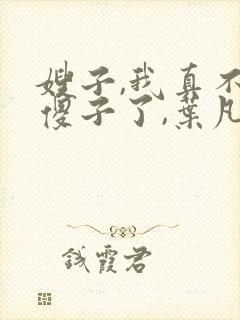 嫂子,我真不
傻子了,葉凡
钱霞君